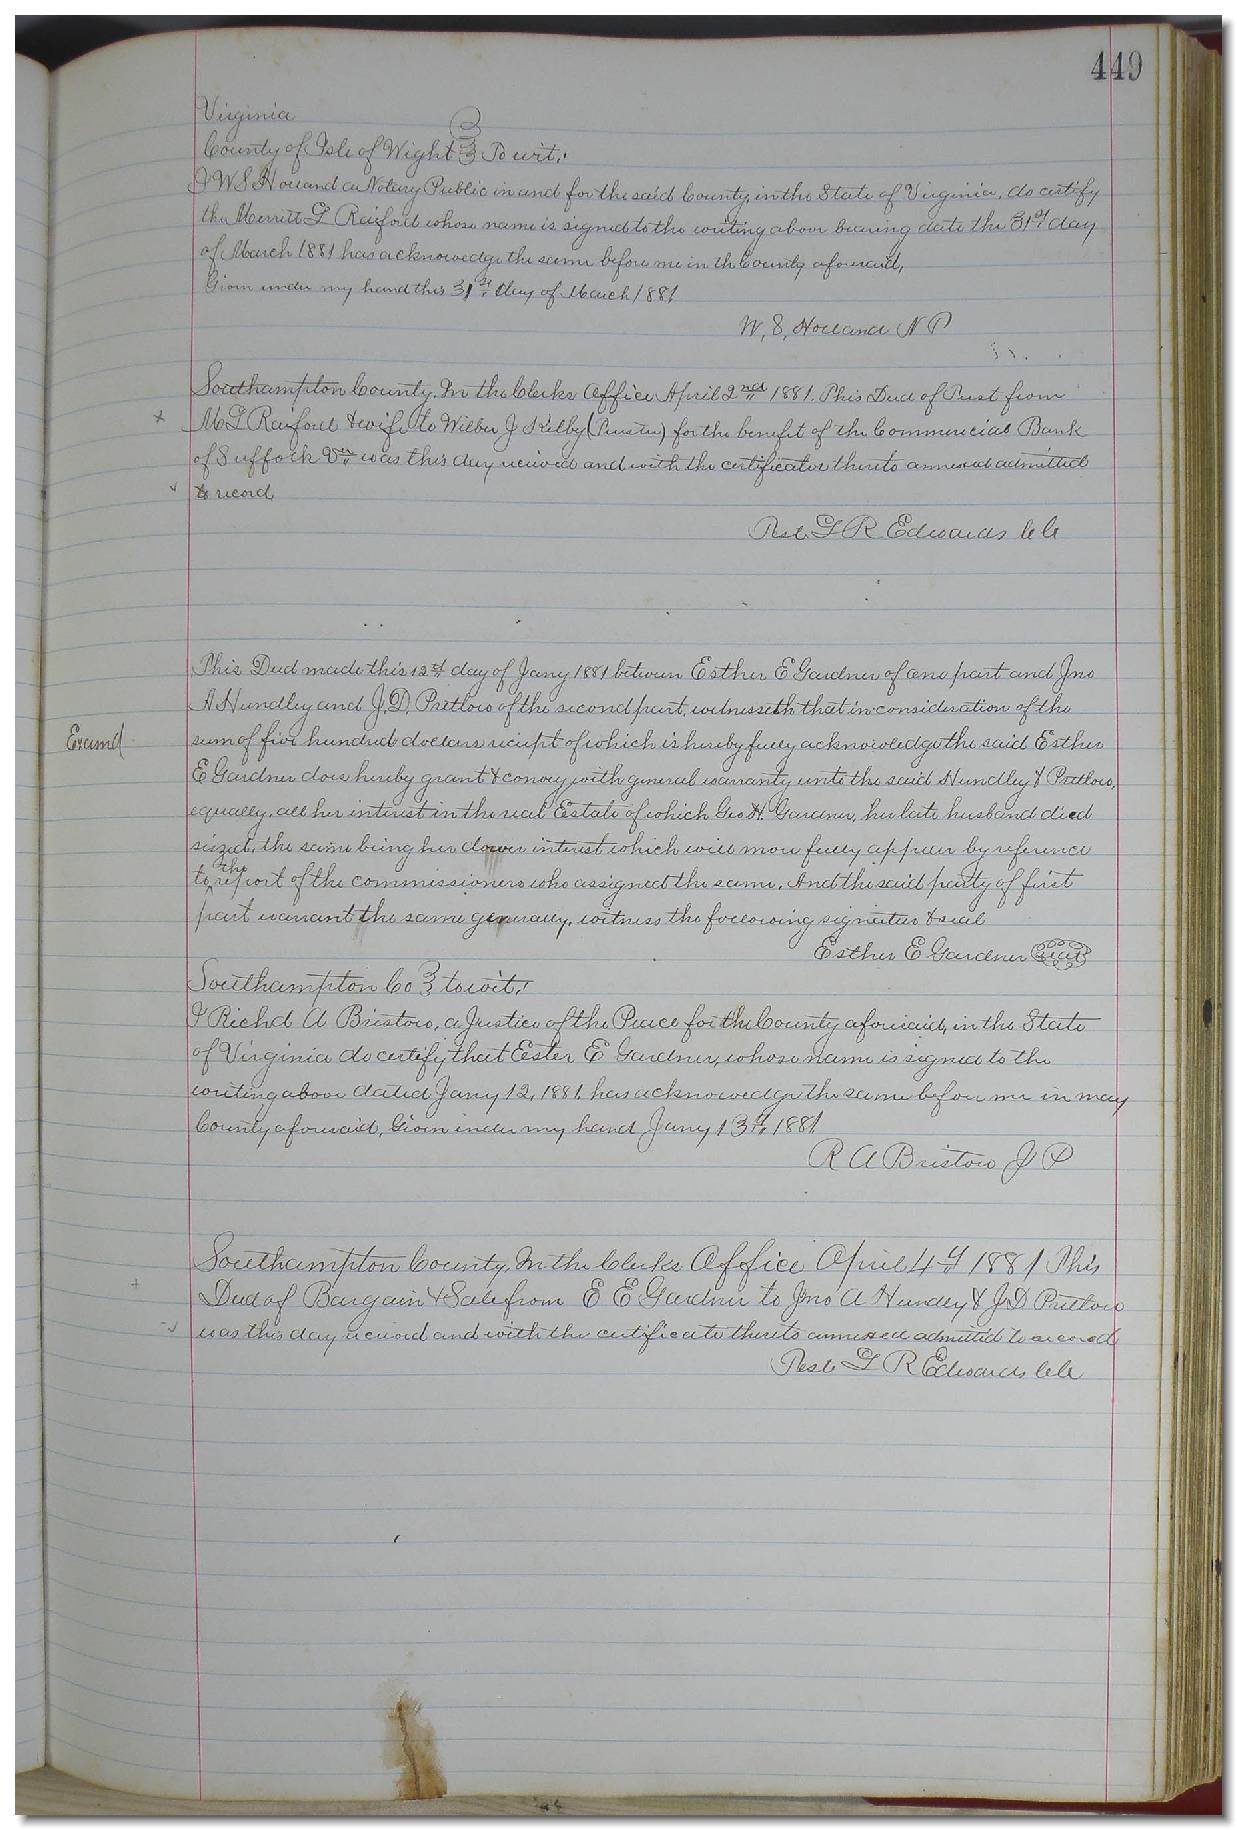 449
Virginia
County of Isle of Wight To wit:
I W S Holland a Notary Public in and for the said County, in the State of Virginia, do certify
the Merritt Raiford whose name is signed to the writing above bearing date the 31st day
of March 1881 has acknowledge the same before me in th County aforesaid,
Given under my hand this 31st day of March 1881
W, S, Holland N P
Southampton County. In the Clerks Office April 2nd 1881. This Deed of Trust from
Raiford & wife to Wilber J Kilby (Trustee) for the benefit of the Commercial Bank
of Suffolk Va was this day received and with the certificates thereto annexed admitted
to record
Test. G R Edwards Clk
This Deed made this 12th day of Jany 1881 between Esther E Gardner of one part and Jno
A Hundley and J. D. Pretlow of the second part, witnesseth that in consideration of the
Examd
sum of five hundred dollars reciept of which is hereby fully acknowledge the said Esther
E Gardner does hereby grant & convey with general warranty unto the said Hundley & Pretlow,
equally, all her interest in the real Estate of which Geo H. Gardner, her late husband died
siezed, the same being her dower interest which will more fully appear by reference
to the report of the commissioners who assigned the same. And the said party of first
part warrant the same generally, witness the following signature & seal
Esther E Gardner Seal
Southampton Co to wit:
I Richd A Bristow, a Justice of the Peace for the County aforesaid, in the State
of Virginia do certify that Ester E Gardner, whose name is signed to the
writing above dated Jany 12, 1881 has acknowledge the same before me in may
County aforesaid, Given under my hand Jany 13th, 1881
R A Bristow J P
Southampton County, In the Clerks Office April 4th 1881 This
Deed of Bargain & Sale from E E Gardner to Jno A Hundley & J D Pretlow
was this day received and with the certificate thereto annexed admitted to record
Test G R Edwards Clk